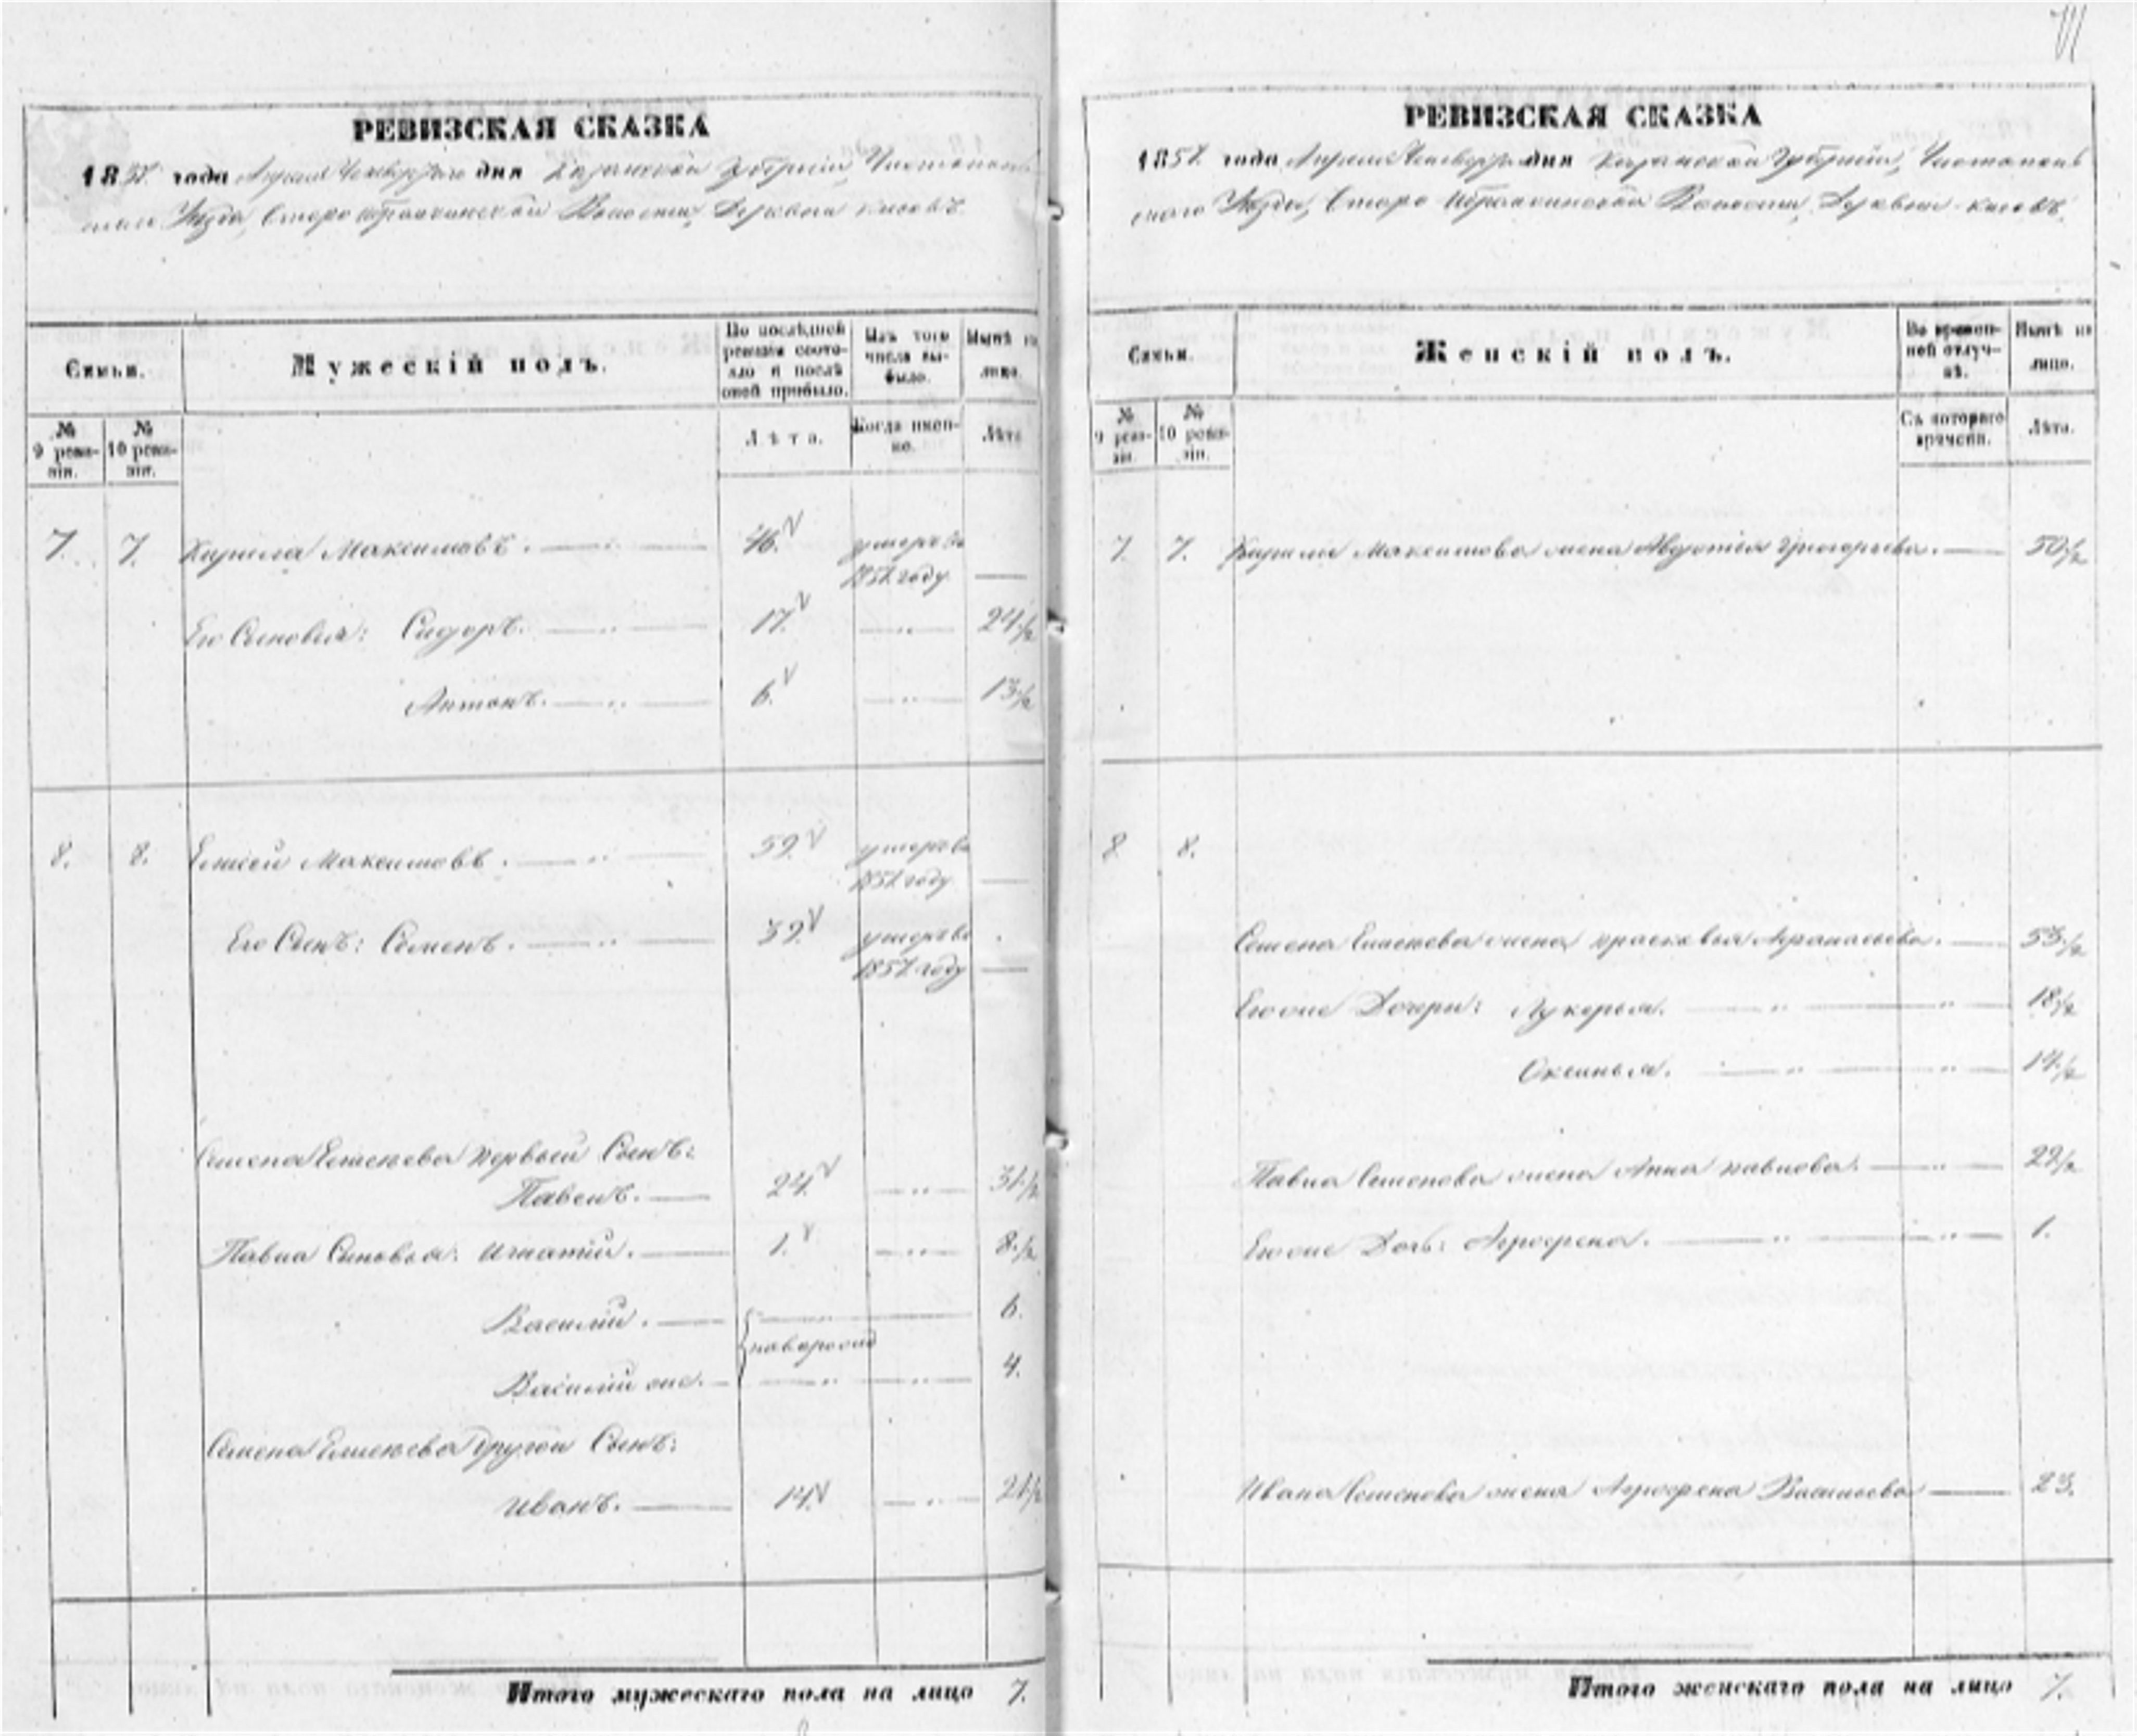 РЕВИЗСКАЯ СКАЗКА
1857. года Апреля Четвертаго дня Казанской Губерніи, Чистополь
скаго Уѣзда, Старо Волости, Деревни
Семьи.
Мужескій полъ.
По послѣдней ревизіи состояло и послѣ оной прибыло.
Изъ того числа выбыло.
Нынѣ на лицо.
№ 9 ревизіи.
№ 10 ревизіи.
Лѣта.
Когда именно.
Лѣта
7. 7. Кирила Максимовъ. 46. умеръ въ
1857. году.
Его Сыновья: Сидоръ. 17. 24 1/2
Антонъ. 6. 13 1/2
8. 8. Елисей Максимовъ. 59. умеръ въ
185 году
Его Сынъ: Семенъ. 39. умеръ въ
1857. году
Семена Елисеева первый Сынъ:
Павелъ. 24. 31 1/2
Павла Сыновья: Игнатій. 1. 8 1/2
Василій. 6.
новорожд
Василій же. 4.
Семена Елисеева другой Сынъ:
Иванъ. 14. 21 1/2
Итого мужескаго пола на лицо 7.
РЕВИЗСКАЯ СКАЗКА
1857. года Апреля Четвертаго дня Казанской Губерніи, Чистополь
скаго Уѣзда, Старо Волости, Деревни
Семьи.
Женскій полъ.
Во временной отлучкѣ.
Нынѣ на лицо.
№ 9 ревизіи.
№ 10 ревизіи.
Съ котораго времени.
Лѣта.
7. 7. Кирилы Максимова жена Авдотья Григорьева. 50 1/2
8 8.
Семена Елисеева жена Прасковья Афанасьева. 53 1/2
Его же Дочери: Лукерья. 18 1/2
Оксинья. 14 1/2
Павла Семенова жена Анна Павлова. 29 1/2
Его же Дочь: Агрофена. 1.
Ивана Семенова жена Агрофена Васильева 23.
Итого женскаго пола на лицо 7.